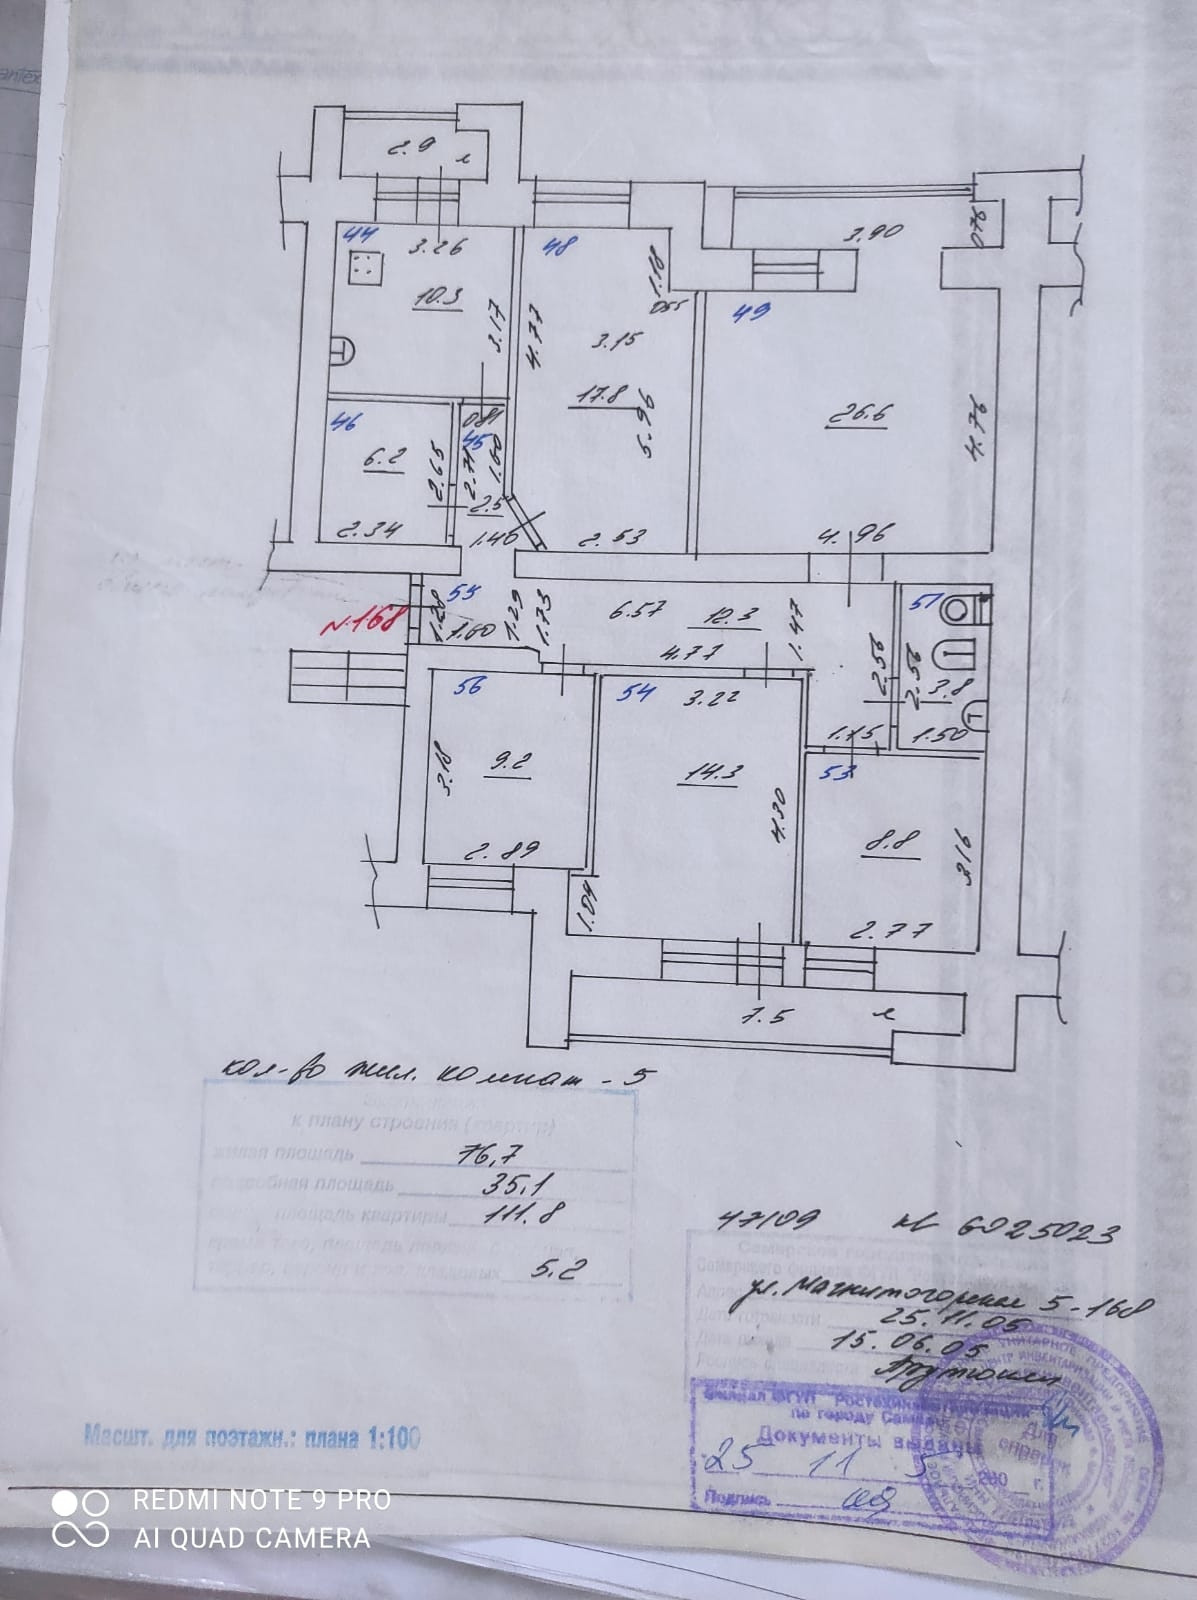 2.9 л
44
3.26
48
3.90
0.70
10.3
3.17
4.77
1.18
0.55
49
3.15
17.8
5.96
26.6
4.76
46
0.81
45
6.2
2.65
2.71
1.60
2.5
2.34
1.46
2.53
4.96
N.168
55
1.28
1.60
1.29
1.73
6.57
12.3
4.77
1.47
51
2.56
2.56
3.8
1.15
1.50
56
54
3.22
53
3.18
9.2
14.3
4.30
8.8
3.16
2.89
1.04
2.77
7.5 л
кол-во жил. комнат - 5
к плану строения (квартир)
жилая площадь 76,7
подсобная площадь 35,1
площадь квартиры 111.8
5.2
47109 6025023
ул. Магнитогорская 5-168
25.11.05
15.06.05
Филиал ФГУП Ростехинвентаризация
по городу Самаре
Документы выданы
25 11 5 200 г.
Подпись
Для справок
Масшт. для поэтажн.: плана 1:100
REDMI NOTE 9 PRO
AI QUAD CAMERA